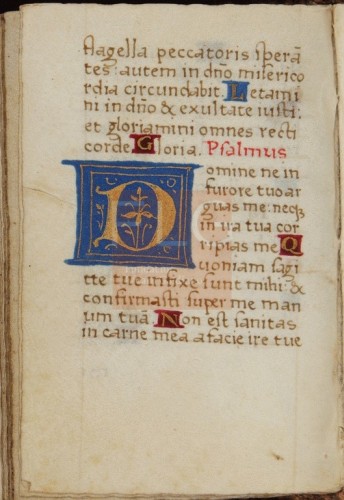 flagella peccatoris sperā
tes autem in dño miserico
rdia circundabit. Letami
ni in dño & exultate iusti:
et gloriamini omnes recti
corde. Gloria. Psalmus
Domine ne in
furore tuo ar
guas me: neqȝ
in ira tua cor
ripias me. Q
uoniam sagi
tte tue infixe sunt mihi: &
confirmasti super me man
um tuā. Non est sanitas
in carne mea a facie ire tue